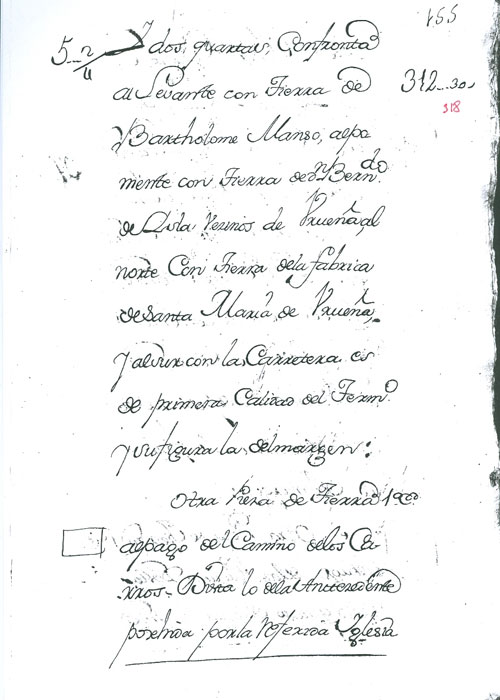 155
5
Y dos, quartas, Confronta
al Levante con Tierra de
312...30
318
Bartholome Manso, alpo
niente con Tierra de Dn Berndo
de Isla, Vezinos de Vrueña, al
norte Con Tierra dela fabrica
de Santa Maria de Vrueña,
y alsur con la Carretera es
de primera Calidad del Termo
y su figura la del margen:
Otra Pieza de Tierra
alpago del Camino delos Ca-
rros Dista lo dela Antecedente
posehida por la referida Yglesia